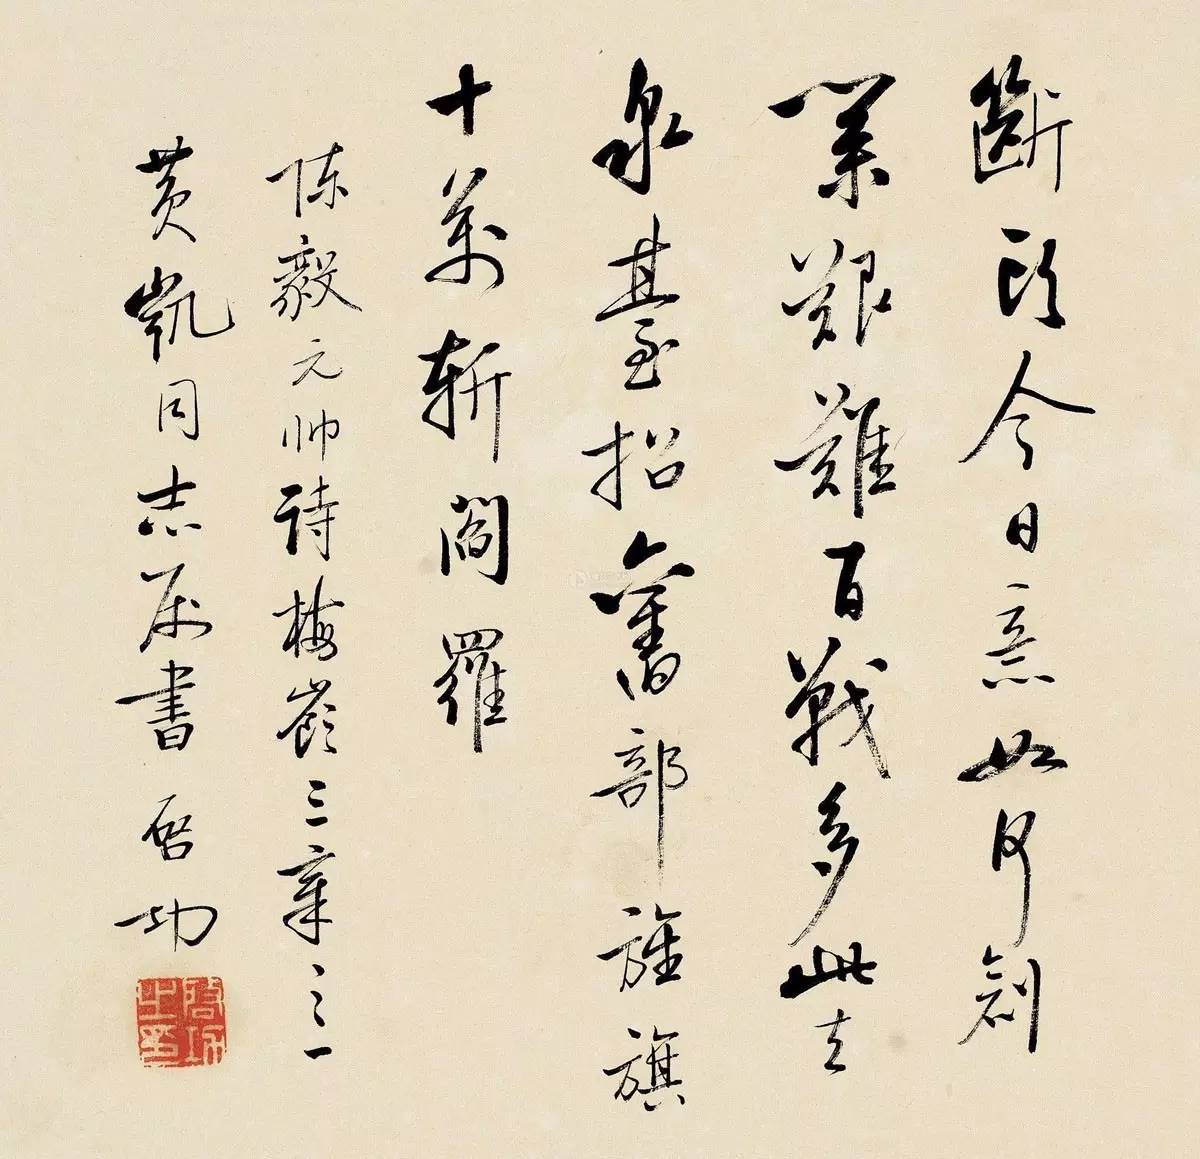 斷頭今日意如何創
業艱難百戰多此去
泉臺招舊部旌旗
十萬斬閻羅
陳毅元帥詩梅嶺三章之一
黄凱同志属書 啓功
啓功之印